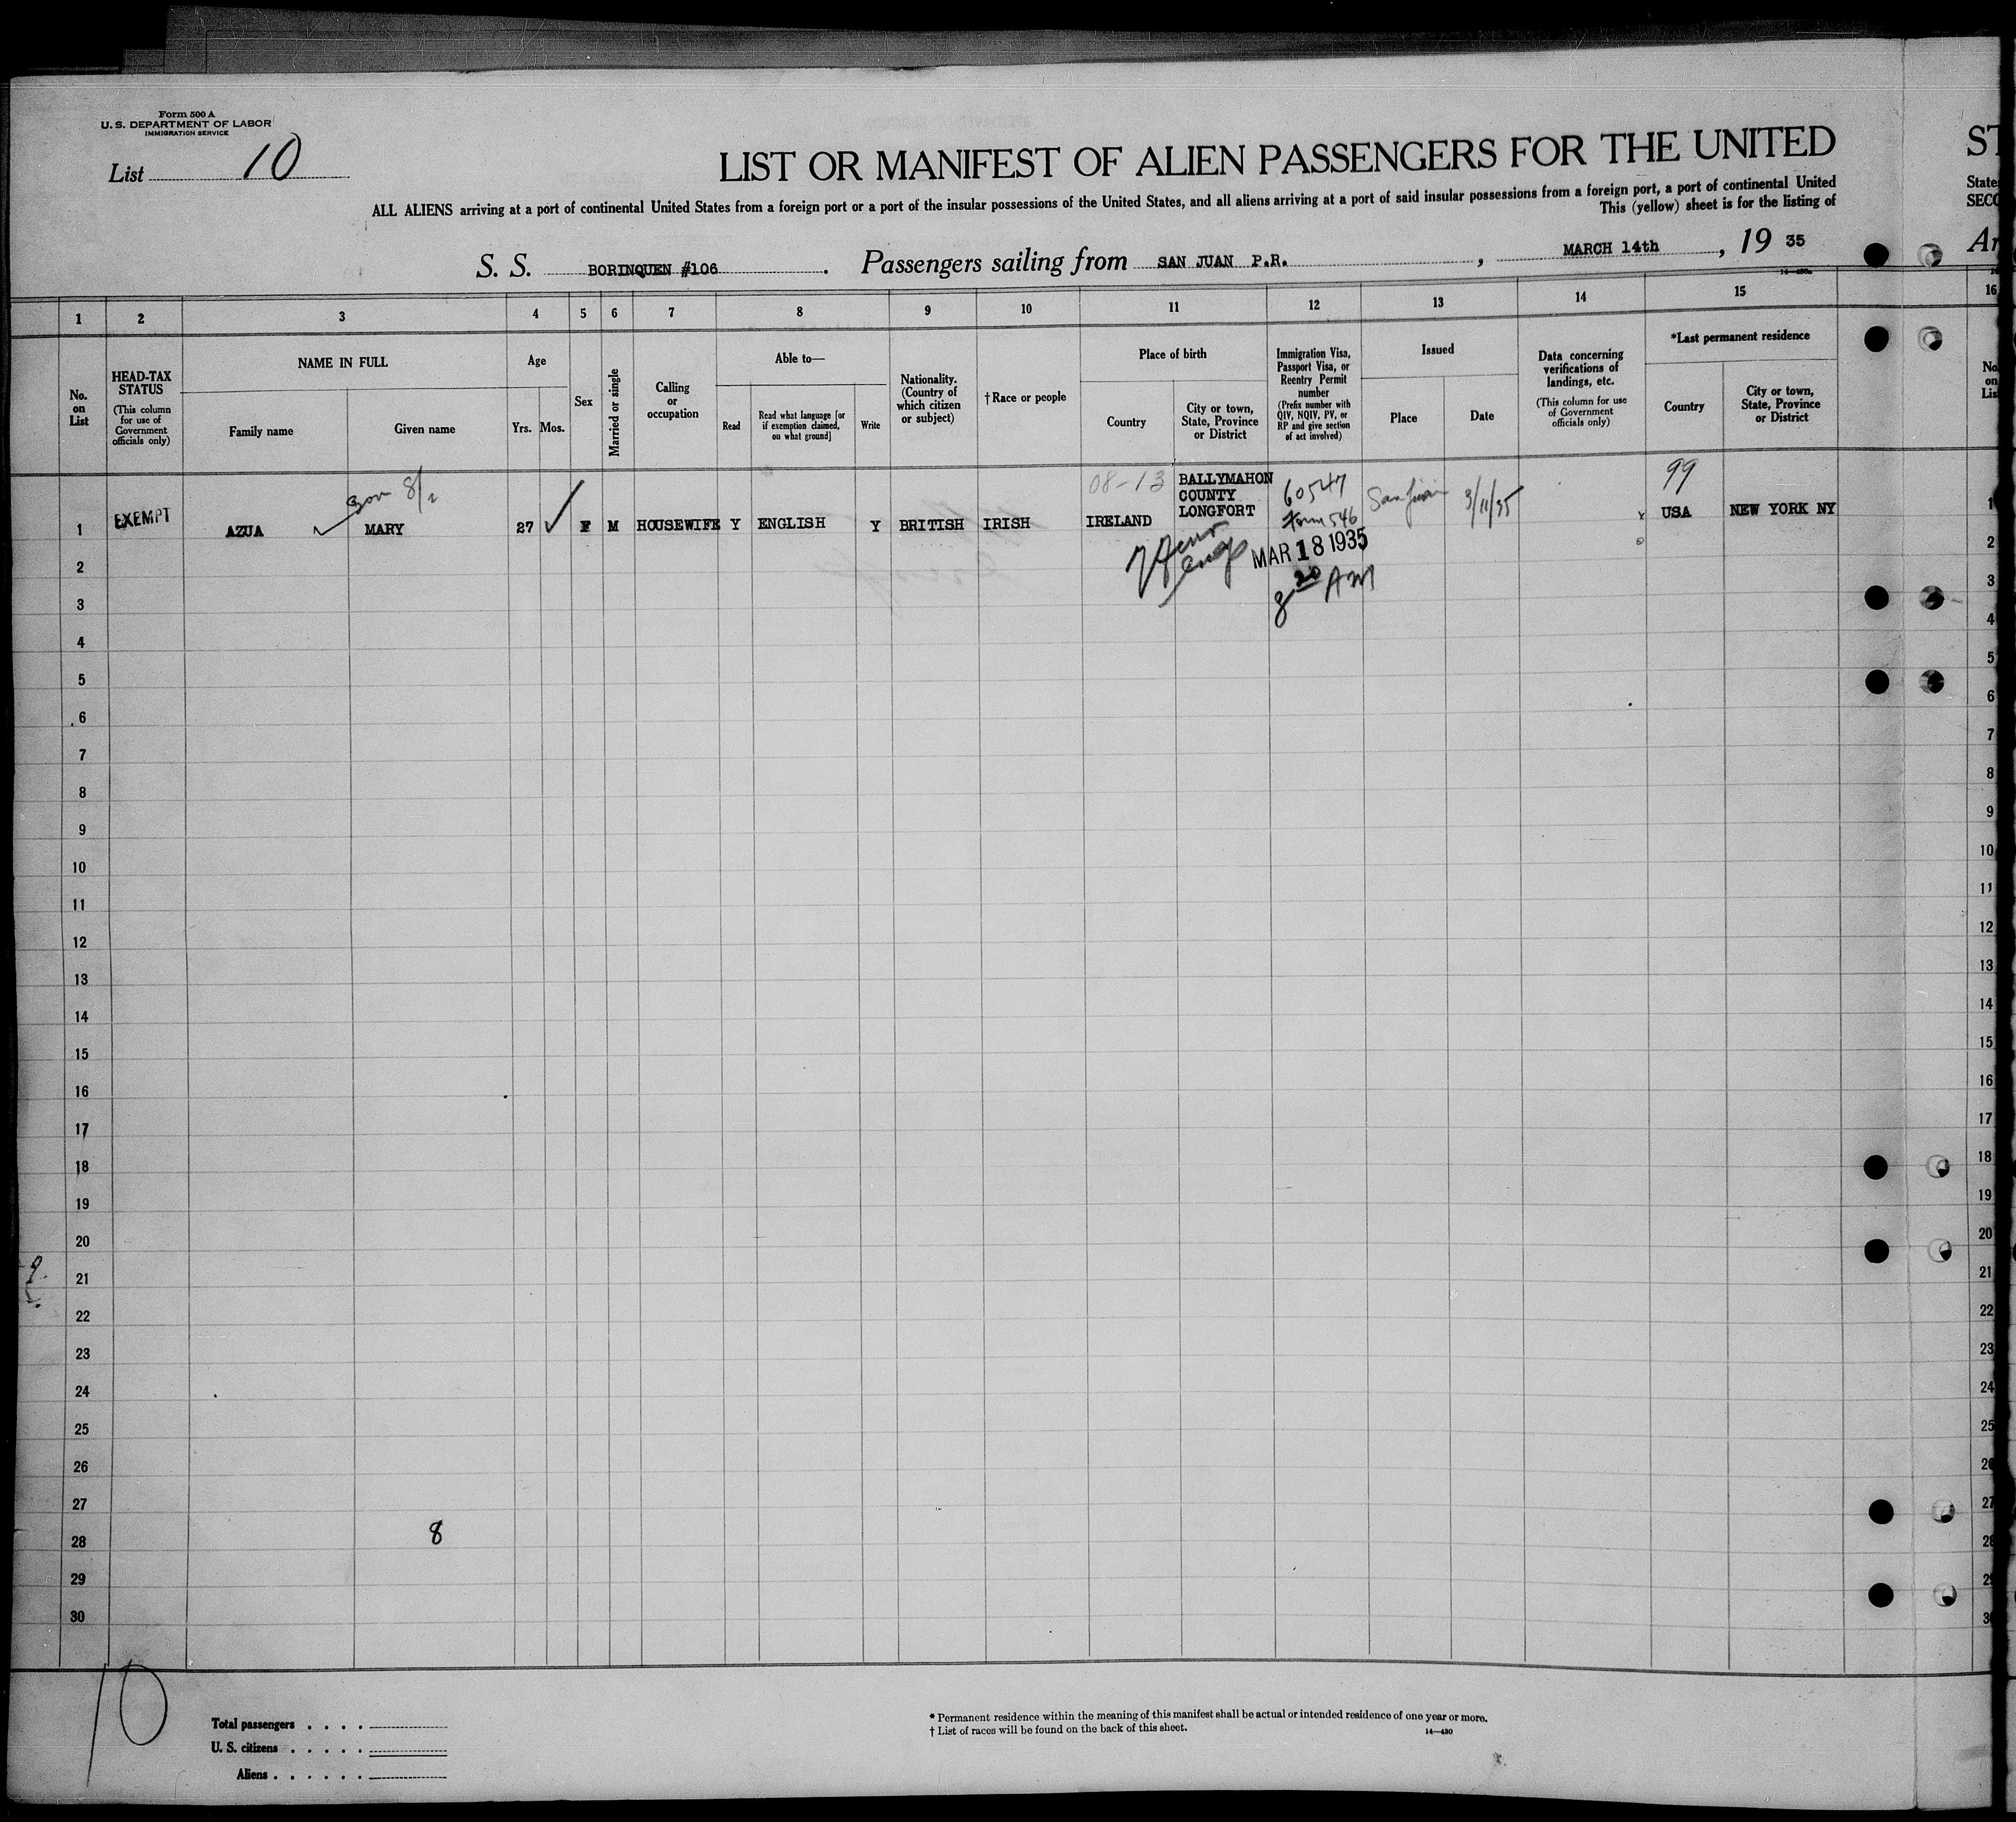 Form 500 A
U. S. DEPARTMENT OF LABOR
IMMIGRATION SERVICE
List 10
LIST OR MANIFEST OF ALIEN PASSENGERS FOR THE UNITED
ST
ALL ALIENS arriving at a port of continental United States from a foreign port or a port of the insular possessions of the United States, and all aliens arriving at a port of said insular possessions from a foreign port, a port of continental United
State
This (yellow) sheet is for the listing of
SECO
S. S. BORINQUEN #106. Passengers sailing from SAN JUAN P.R., MARCH 14th, 19 35
Ar
1 2 3 4 5 6 7 8 9 10 11 12 13 14 15 16
No. on List
HEAD-TAX STATUS
(This column for use of Government officials only)
NAME IN FULL
Family name
Given name
Age
Yrs. Mos.
Sex
Married or single
Calling or occupation
Able to—
Read
Read what language [or if exemption claimed, on what ground]
Write
Nationality. (Country of which citizen or subject)
†Race or people
Place of birth
Country
City or town, State, Province or District
Immigration Visa, Passport Visa, or Reentry Permit number
(Prefix number with QIV, NQIV, PV, or RP and give section of act involved)
Issued
Place
Date
Data concerning verifications of landings, etc.
(This column for use of Government officials only)
*Last permanent residence
Country
City or town, State, Province or District
No. on List
08-13 BALLYMAHON 60547 99
COUNTY
1 EXEMPT AZUA MARY 27 F M HOUSEWIFE Y ENGLISH Y BRITISH IRISH IRELAND LONGFORT Form 546 San Juan 3/11/35 USA NEW YORK NY 1
MAR 18 1935
2 2
8 20 AM
3 3
4 4
5 5
6 6
7 7
8 8
9 9
10 10
11 11
12 12
13 13
14 14
15 15
16 16
17 17
18 18
19 19
20 20
21 21
22 22
23 23
24 24
25 25
26 26
27 27
8
28 28
29 29
30 30
10
Total passengers . . . .
U. S. citizens . . . . .
Aliens . . . . . .
* Permanent residence within the meaning of this manifest shall be actual or intended residence of one year or more.
† List of races will be found on the back of this sheet.
14—430